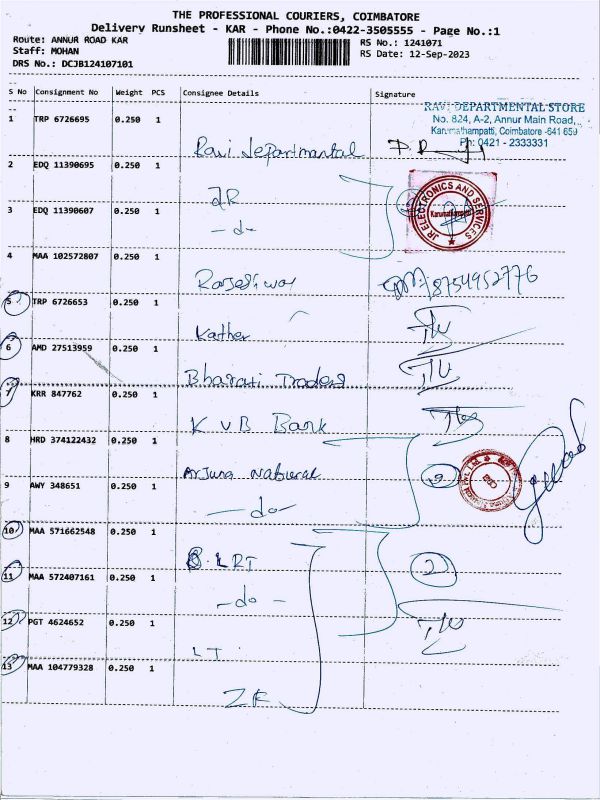 THE PROFESSIONAL COURIERS, COIMBATORE
Delivery Runsheet - KAR - Phone No.:0422-3505555 - Page No.:1
Route: ANNUR ROAD KAR
RS No.: 1241071
Staff: MOHAN
RS Date: 12-Sep-2023
DRS No.: DCJB124107101
S No Consignment No Weight PCS Consignee Details Signature
RAVI DEPARTMENTAL STORE
No. 824, A-2, Annur Main Road,
Karumathampatti, Coimbatore -641 659
Ph: 0421 - 2333331
1 TRP 6726695 0.250 1
Ravi Departmental
2 EDQ 11390695 0.250 1
JR
JR ELECTRONICS AND SERVICES
Karumathampatti
3 EDQ 11390607 0.250 1
-do-
4 MAA 102572807 0.250 1
Rajeshwar 8754952776
5 TRP 6726653 0.250 1
Kather
6 AMD 27513959 0.250 1
Bharati Traders
7 KRR 847762 0.250 1
KVB Bank
8 HRD 374122432 0.250 1
Arjuna Natural
9 AWY 348651 0.250 1
-do-
10 MAA 571662548 0.250 1
LRT
2
11 MAA 572407161 0.250 1
-do-
12 PGT 4624652 0.250 1
LT
13 MAA 104779328 0.250 1
ZR